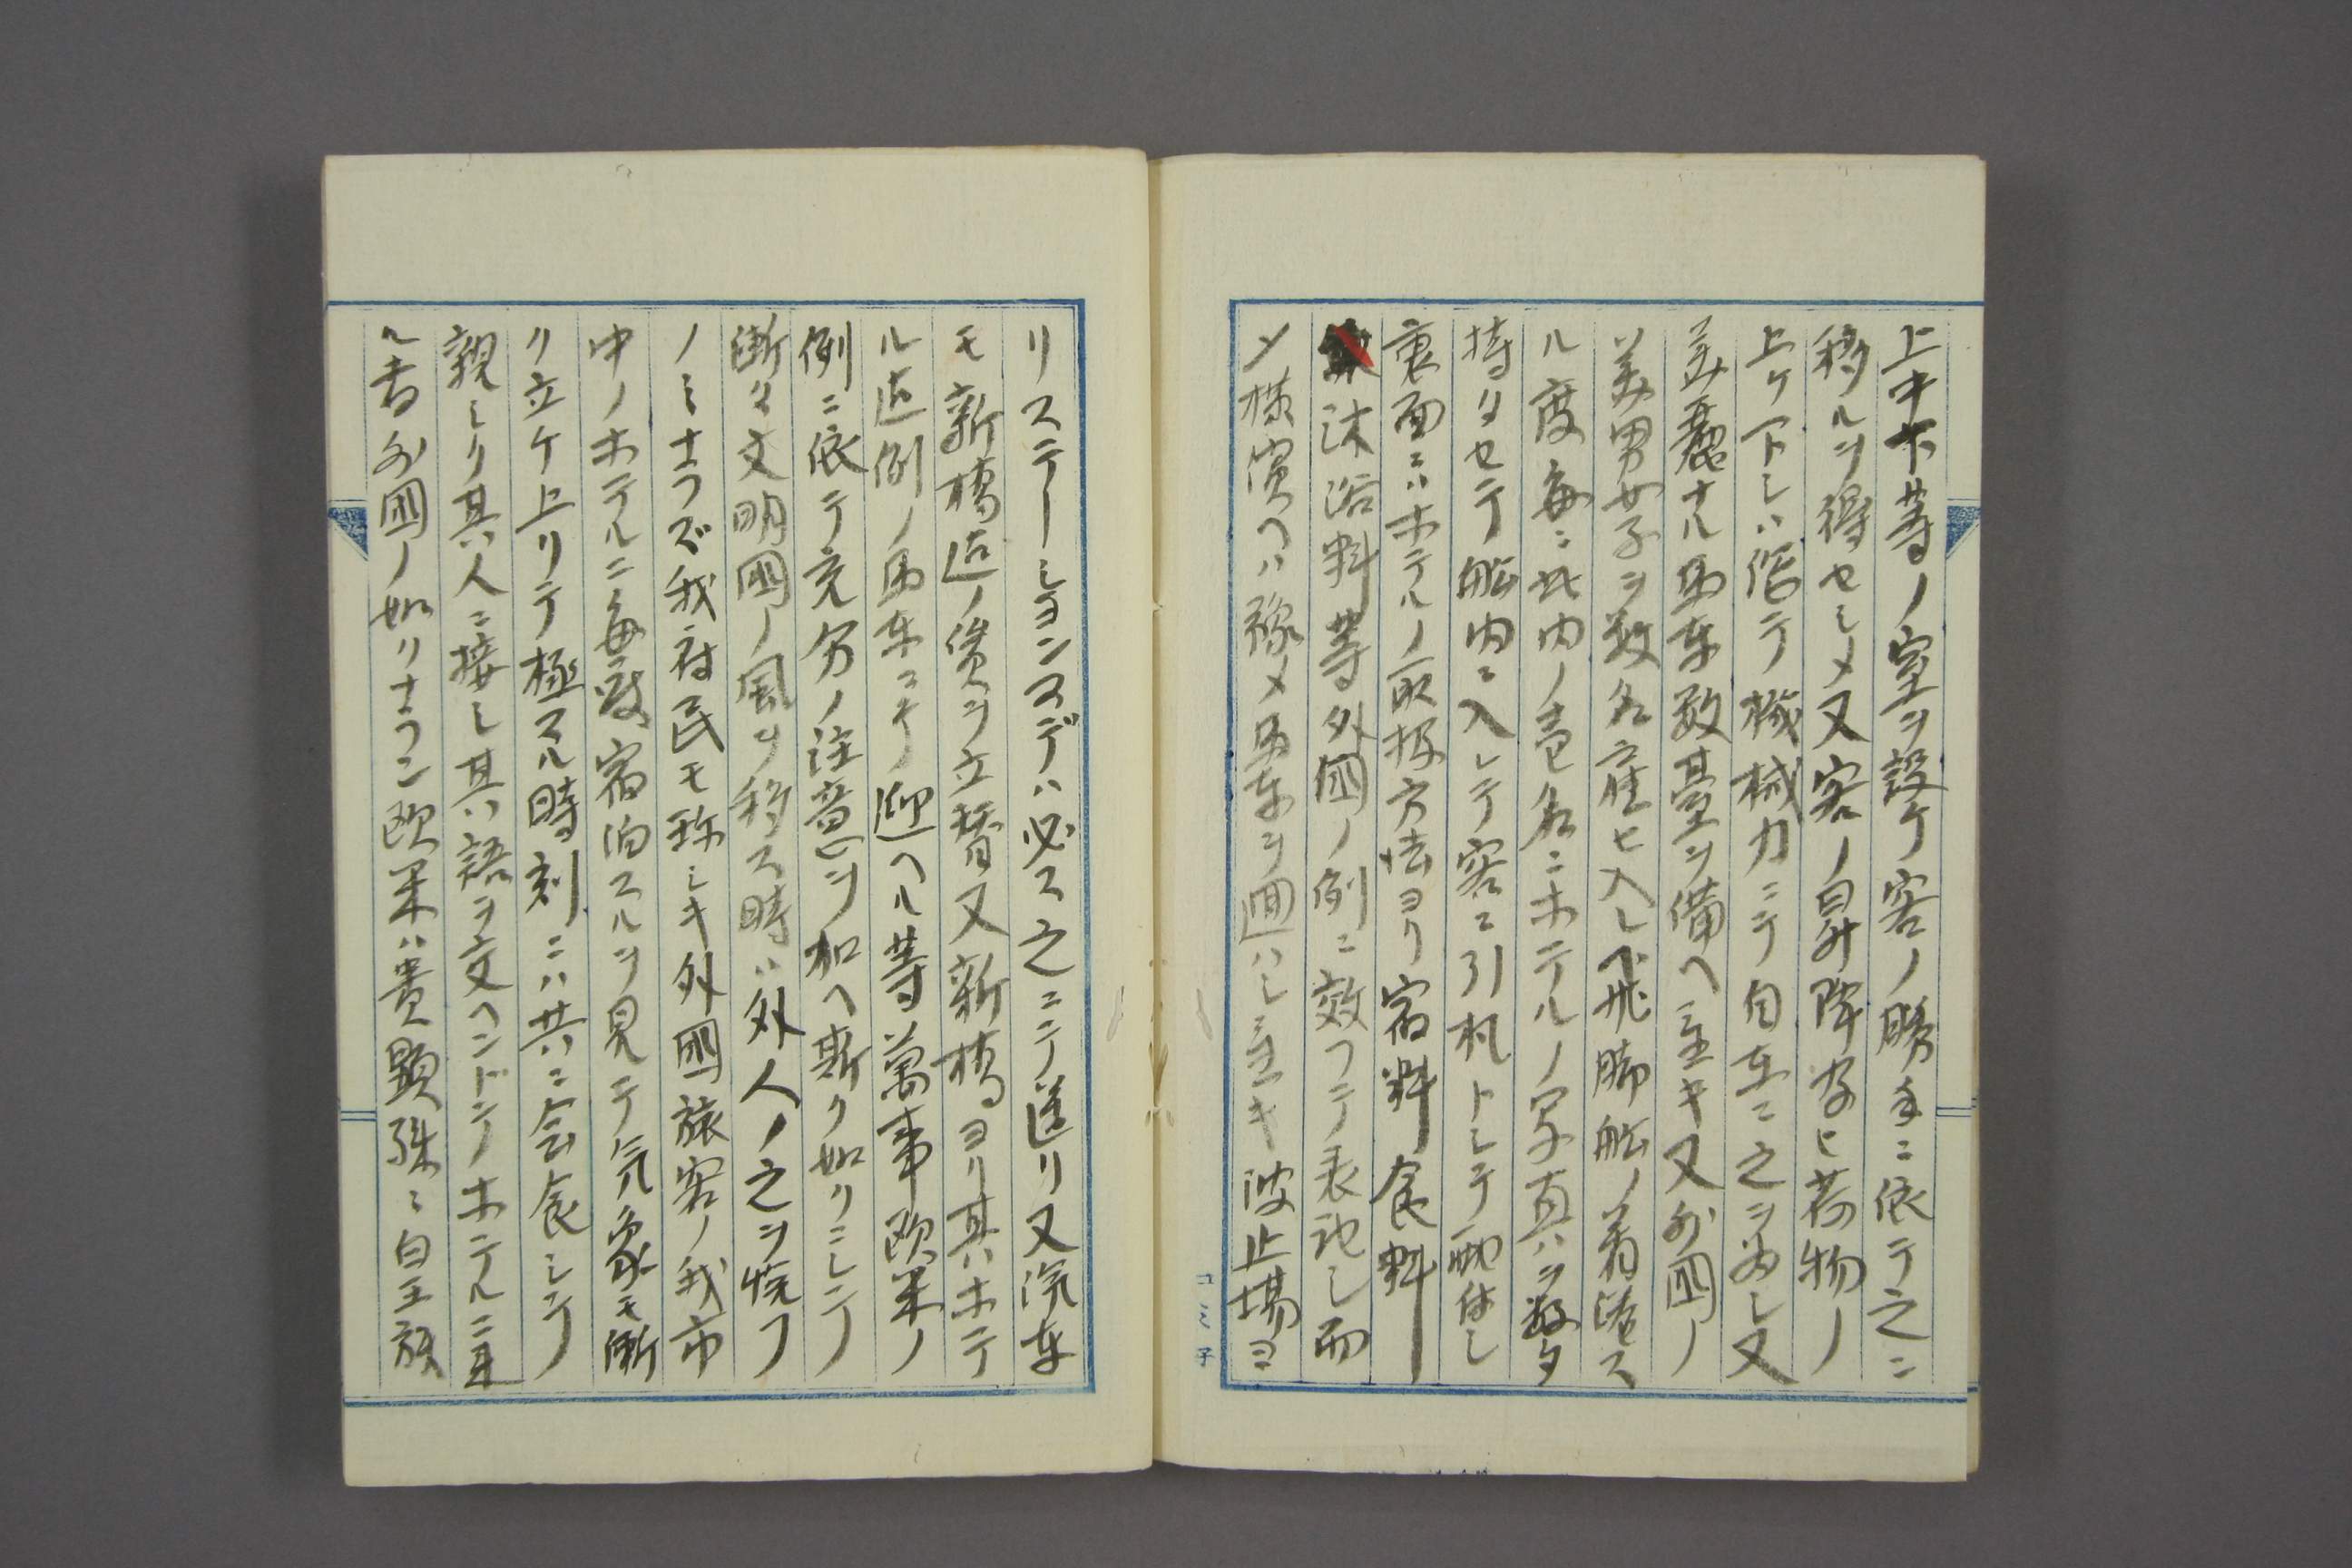 上中下等ノ室ヲ設ケ客ノ勝手ニ依テ之ニ
移ルヲ得セシメ又客ノ昇降並ヒ荷物ノ
上ケ下シハ皆テ機械力ニテ自在ニ之ヲ為シ又
美麗ナル馬車数臺ヲ備ヘ置キ又外國ノ
美男女子ヲ数名雇ヒ入レ飛脚舩ノ着港ス
ル度毎ニ此内ノ壱名ニホテルノ写真ヲ数タ
持タセテ舩内ニ入レテ客ニ引札トシテ配付シ
裏面ニハホテルノ取扱方法ヨリ宿料食料
沐浴料等外國ノ例ニ效フテ表記シ而
メ横濱ヘハ豫メ馬車ヲ廻ハシ置キ波止場ヨ
リステーションマデハ必ス之ニテ送リ又汽車
モ新橋迄ノ賃ヲ立替又新橋ヨリ其ホテ
ル迄例ノ馬車ニテ迎ヘル等萬事欧米ノ
例ニ依テ充分ノ注意ヲ加ヘ斯ク如クニシテ
漸々文明國ノ風ヲ移ス時ハ外人ノ之ヲ悦フ
ノミナラズ我社民モ珍シキ外國旅客ノ我市
中ノホテルニ毎度宿泊スルヲ見テ気象モ漸
ク立ケ上リテ極マル時刻ニハ共ニ会食シテ
親シク其人ニ接シ其語ヲ交ヘンドンノホテルニ来
ル者外國ノ如クナラン欧米ハ貴顕殊ニ白王族
コミ子